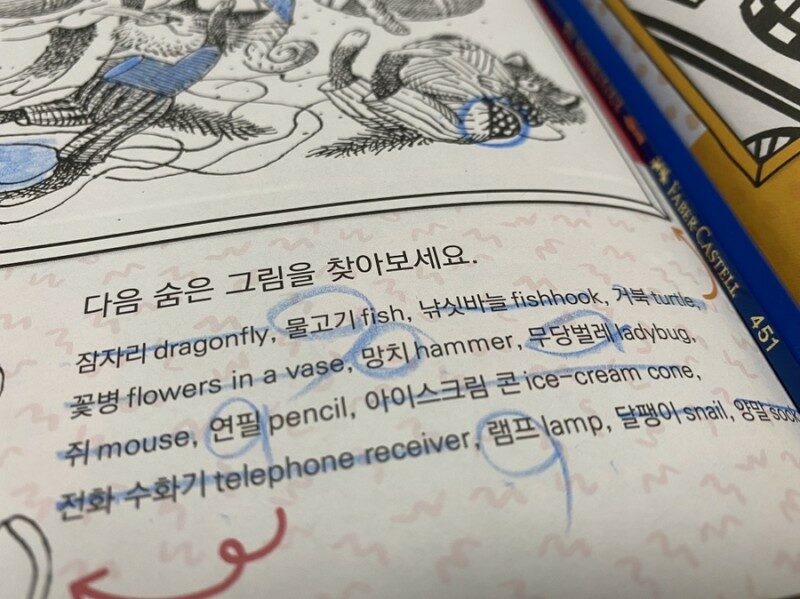 다음 숨은 그림을 찾아보세요.
잠자리 dragonfly, 물고기 fish, 낚싯바늘 fishhook, 거북 turtle,
꽃병 flowers in a vase, 망치 hammer, 무당벌레 ladybug,
쥐 mouse, 연필 pencil, 아이스크림 콘 ice-cream cone,
전화 수화기 telephone receiver, 램프 lamp, 달팽이 snail, 양말 sock
FABER-CASTELL 451